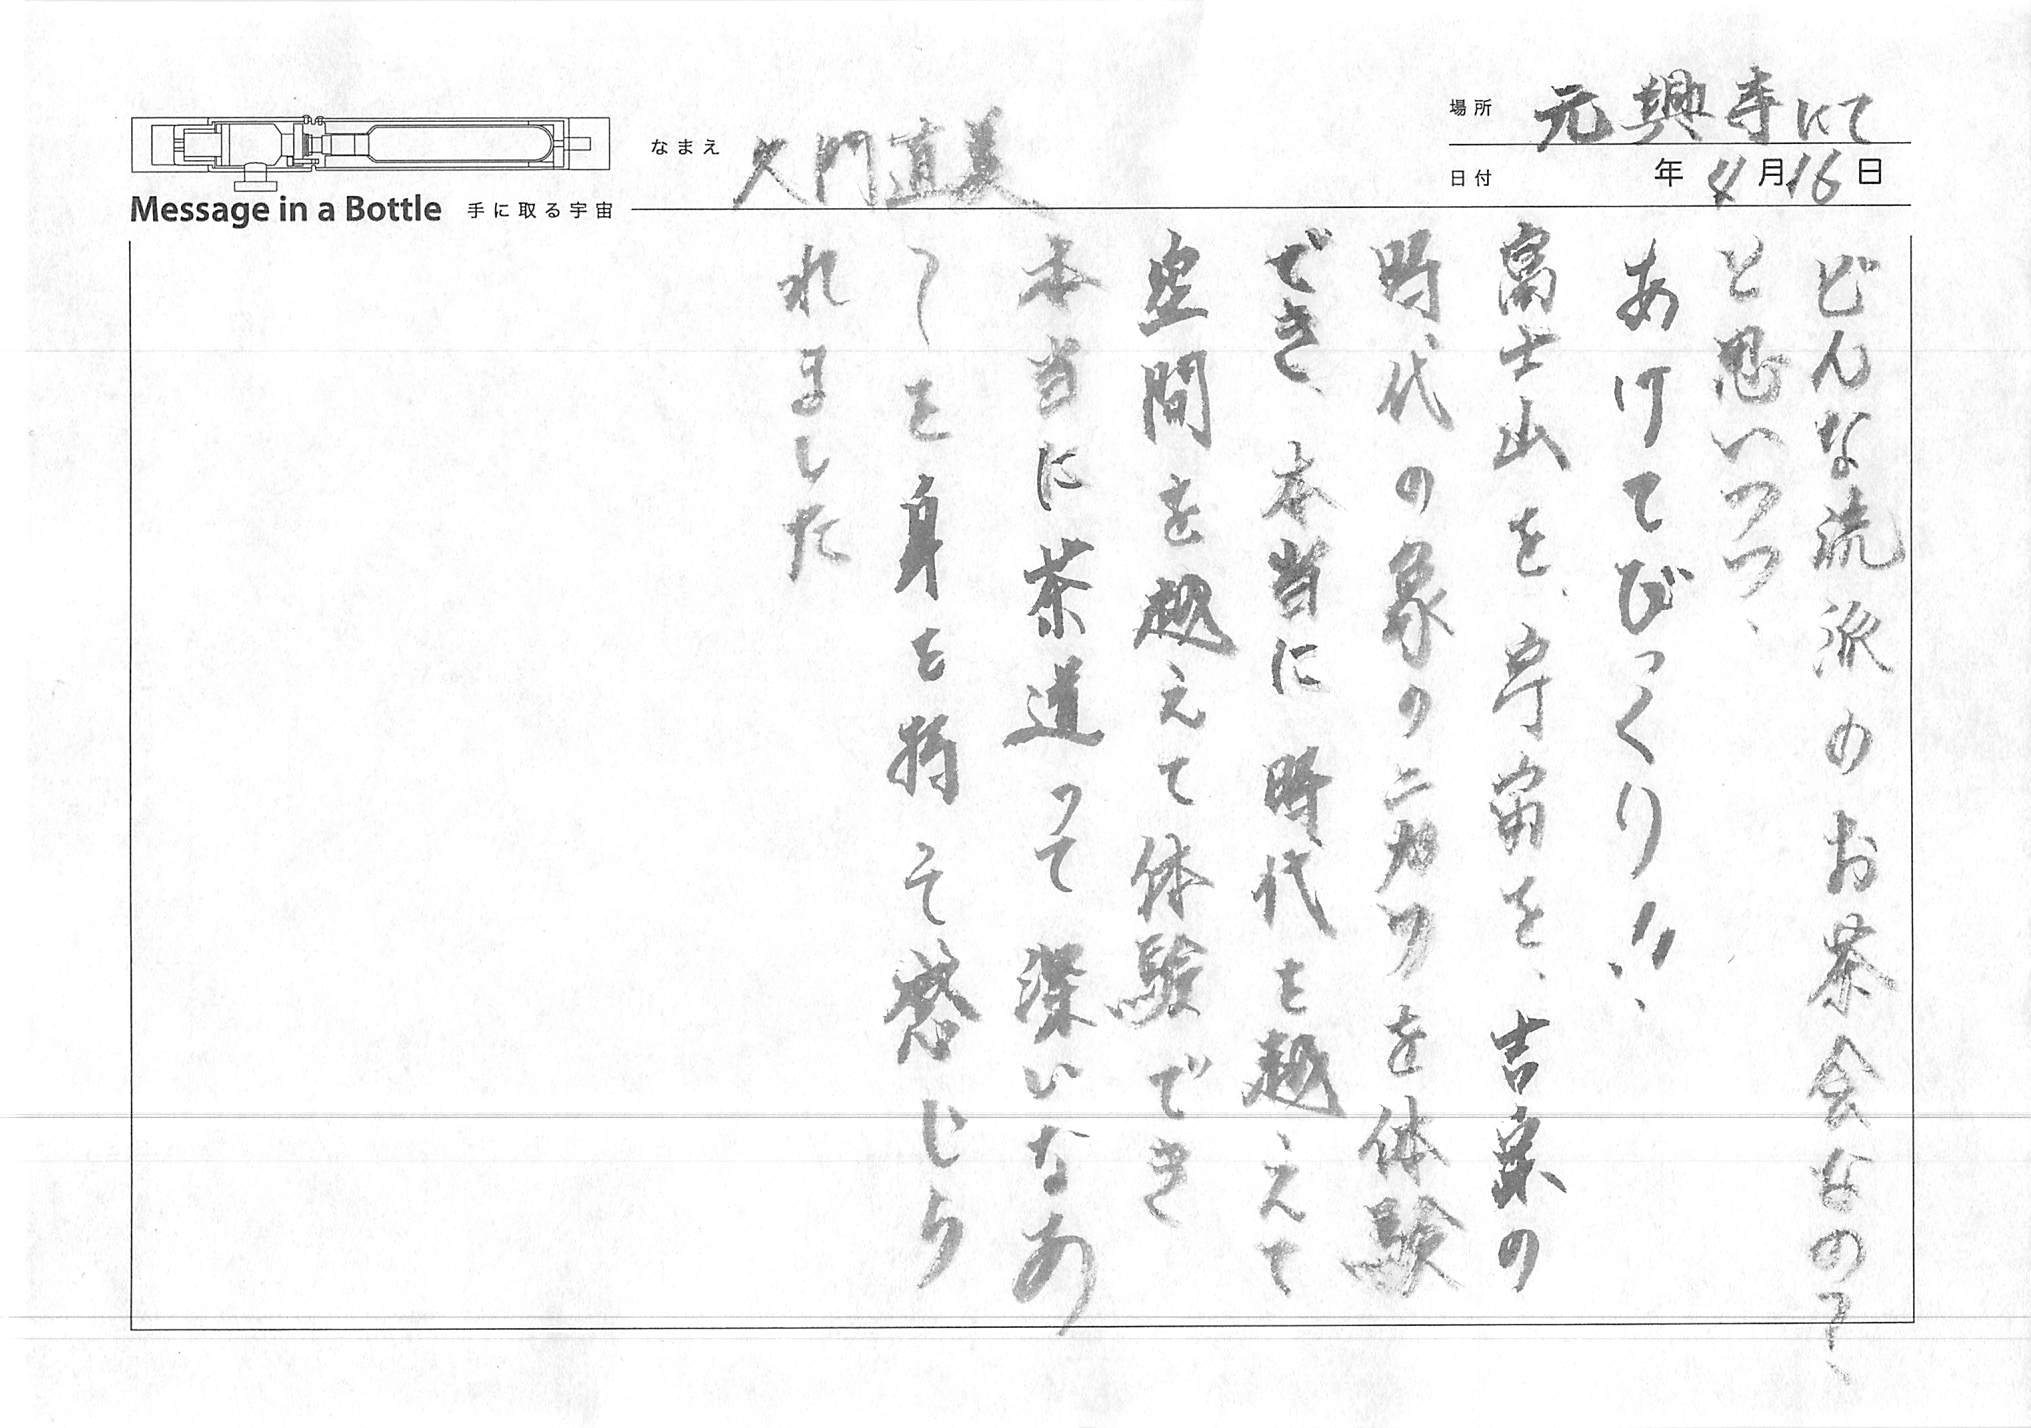 場所 元興寺にて
日付 年4月16日
なまえ 久門直美
Message in a Bottle 手に取る宇宙
どんな流派のお茶会なの〜
と思いつつ、
あけてびっくり!!
富士山を、宇宙を、吉泉の
時代の象のニカワを体験
でき、本当に時代を越えて
空間を越えて体験でき
本当に茶道って深いなあ
〜を身を持って感じら
れました